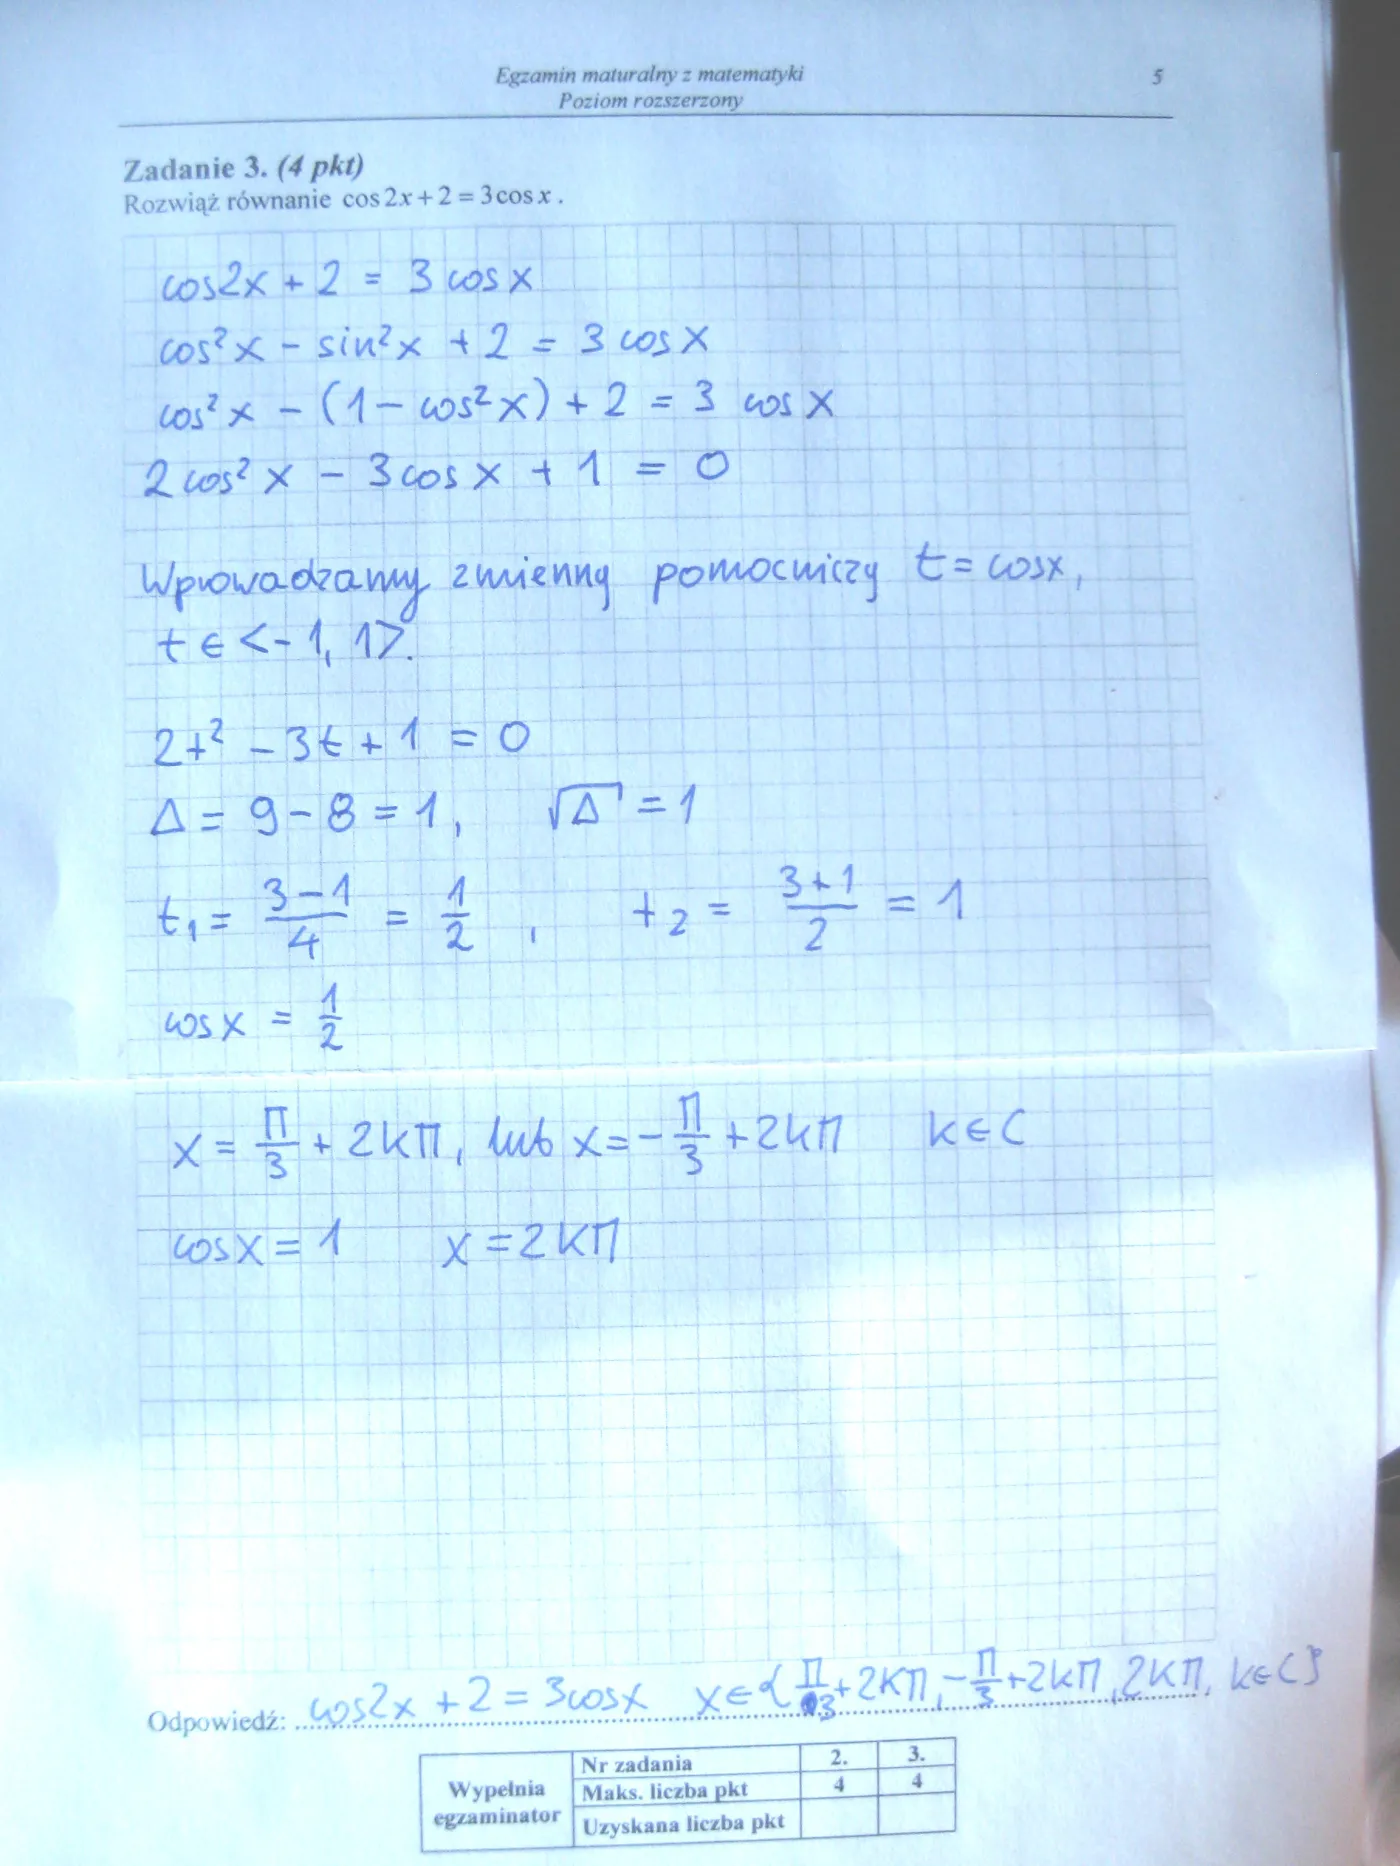 Egzamin maturalny z matematyki 5
Poziom rozszerzony
Zadanie 3. (4 pkt)
Rozwiąż równanie cos 2x + 2 = 3 cos x .
cos2x + 2 = 3 cos x
cos² x - sin² x + 2 = 3 cos x
cos² x - (1 - cos² x) + 2 = 3 cos x
2 cos² x - 3 cos x + 1 = 0
Wprowadzamy zmienną pomocniczą t = cosx,
t ∈ <-1, 1>.
2t² - 3t + 1 = 0
Δ = 9 - 8 = 1, √Δ = 1
t₁ = (3-1)/4 = 1/2 , t₂ = (3+1)/2 = 1
cos x = 1/2
x = Π/3 + 2kΠ, lub x = -Π/3 + 2kΠ k ∈ C
cosx = 1 x = 2kΠ
Odpowiedź: cos2x + 2 = 3cosx x ∈ {Π/3 + 2kΠ, -Π/3 + 2kΠ, 2kΠ, k ∈ C}
Wypełnia egzaminator Nr zadania 2. 3.
Maks. liczba pkt 4 4
Uzyskana liczba pkt